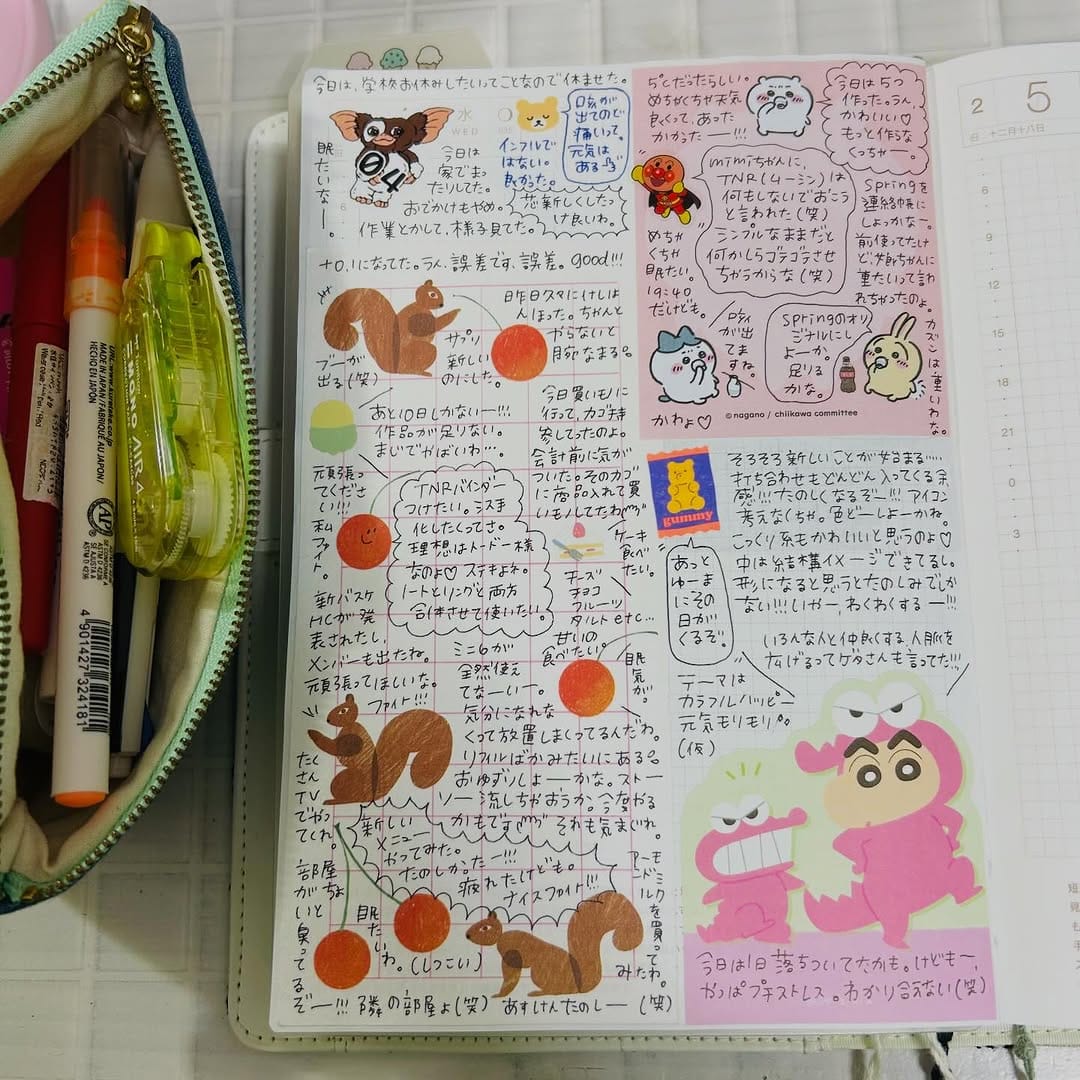 今日は、学校お休みしたいってことなので休ませた。
水
WED
04
眠たいなー
今日は
家でまっ
たりしてた。
おでかけもやめ。
作業とかして、様子見てた。
インフルで
はない。
良かった。
咳が
出てるので
痛いって。
元気は
ある
芯新しくしたっ
け良いわ。
+0.1になってた。うん、誤差です、誤差。good!!!
ブーが
出る(笑)
サプリ
新しい
のにした。
昨日久々にけしは
んほった。ちゃんと
やらないと
腕なまる。
あと10日しかないー!!!
作品が足りない。
まいでやばいわ…。
頑張っ
てくださ
い!!!
私
ファイト。
TNRバインダー
つけたい。ラス手
化したくってさ。
理想はトードー様
なのよ♡ ステキよね。
ノートとリングと両方
合体させて使いたい。
今日買いモノに
行って、カゴ持
参してったのよ。
会計前に気が
ついた。そのカゴ
に商品入れて買
いモノしてたわ
ケーキ
食べ
たい。
チーズ
チョコ
フルーツ
タルトetc…
甘いの
食べたい。
眠気が。
新バスケ
HCが発
表されたし、
メンバーも出たね。
頑張ってほしいな。
ファイト!!!
ミニ6が
全然使え
てなーいー。
気分になれな
くって放置しまくってるんだわ。
リフィルばかみたいにある。
おゆずりしよーかな。ストー
リー流しちゃおうか。今度やる
かもです それも気まぐれ。
たく
さん
TV
でやっ
てくれ。
新しい
メニュー
やってみた。
たのしかったー!!!
疲れたけども。
ナイスファイト!!!
アーモ
ンドミルク
を買って
みたわ。
部屋
がちょ
いと
臭ってる
ぞー!!! 隣の部屋よ(笑)
眠た
いわ。(しつこい)
あすけんたのしー (笑)
5℃だったらしい。
めちゃくちゃ天気
良くって、あった
かかったー!!!
今日は5つ
作ったっラん。
かわいい♡
もっと作らな
くっちゃー。
mimiちゃんに、
TNR(ムーミン)は
何もしないでおこう
と言われた(笑)
シンプルなままだと
何かしらゴテゴテさせ
ちゃうからな(笑)
めちゃ
くちゃ
眠たい。
19:40
だけども。
Springを
連絡帳に
しよっかなー。
前使ってたけ
ど、次郎ちゃんに
重たいって言わ
れちゃったのよ。
カズンは重いわな。
ロクイ
が出
てま
すね。
Springのオリ
ジナルにし
よーか。
足りる
かな。
かわよ♡
© nagano / chiikawa committee
gummy
そろそろ新しいことが始まる……
打ち合わせもどんどん入ってくる予
感!!! たのしくなるぞー!!! アイコン
考えなくちゃ。色どーしよーかね。
こっくり系もかわいいと思うのよ♡
中は結構イメージできてるし。
形になると思うとたのしみでしか
ない!!! いやー、わくわくするー!!!
あっと
ゆーま
にその
日が
くるぞ。
いろんな人と仲良くする、人脈を
広げるってゲタさんも言ってた!!!
テーマは
カラフルハッピー
元気もりもり
(仮)
今日は1日落ちついてたかも。けどもー、
やっぱプチストレス。わかり合えない(笑)
2
5
日 十二月十八日
6
9
12
15
18
21
0
3
URL:www.kuretake.co.jp
MADE IN JAPAN/FABRIQUÉ AU JAPON/
HECHO EN JAPÓN
AP
4 901427 324181